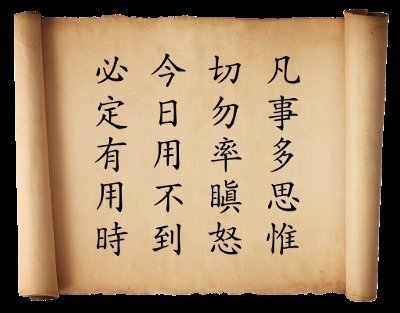 凡事多思惟
切勿率瞋怒
今日用不到
必定有用時